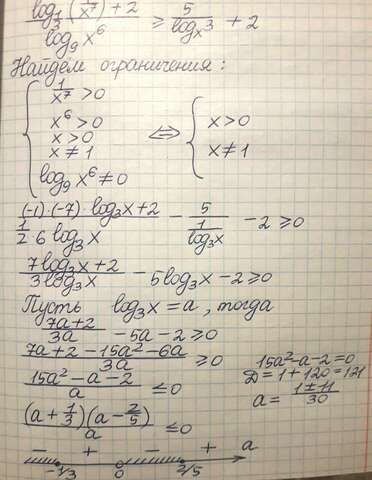 (log_{1/3}(1/x⁷) + 2) / (log₉ x⁶) ≥ 5 / (log_x 3) + 2
Найдем ограничения:
{ 1/x⁷ > 0
x⁶ > 0
x > 0
x ≠ 1
log₉ x⁶ ≠ 0
⇔ { x > 0
x ≠ 1
((-1)·(-7)·log₃x + 2) / (1/2 · 6 log₃x) − 5 / (1/log₃x) − 2 ≥ 0
(7log₃x + 2) / (3log₃x) − 5log₃x − 2 ≥ 0
Пусть log₃x = a, тогда
(7a+2)/(3a) − 5a − 2 ≥ 0
(7a + 2 − 15a² − 6a)/(3a) ≥ 0
(15a² − a − 2)/a ≤ 0
15a² − a − 2 = 0
D = 1 + 120 = 121
a = (1 ± 11)/30
((a + 1/3)(a − 2/5))/a ≤ 0
− + − + a
−1/3 0 2/5